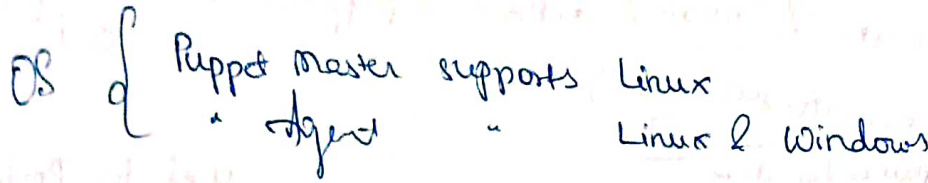 OS { Puppet Master supports Linux
" Agent " Linux & Windows